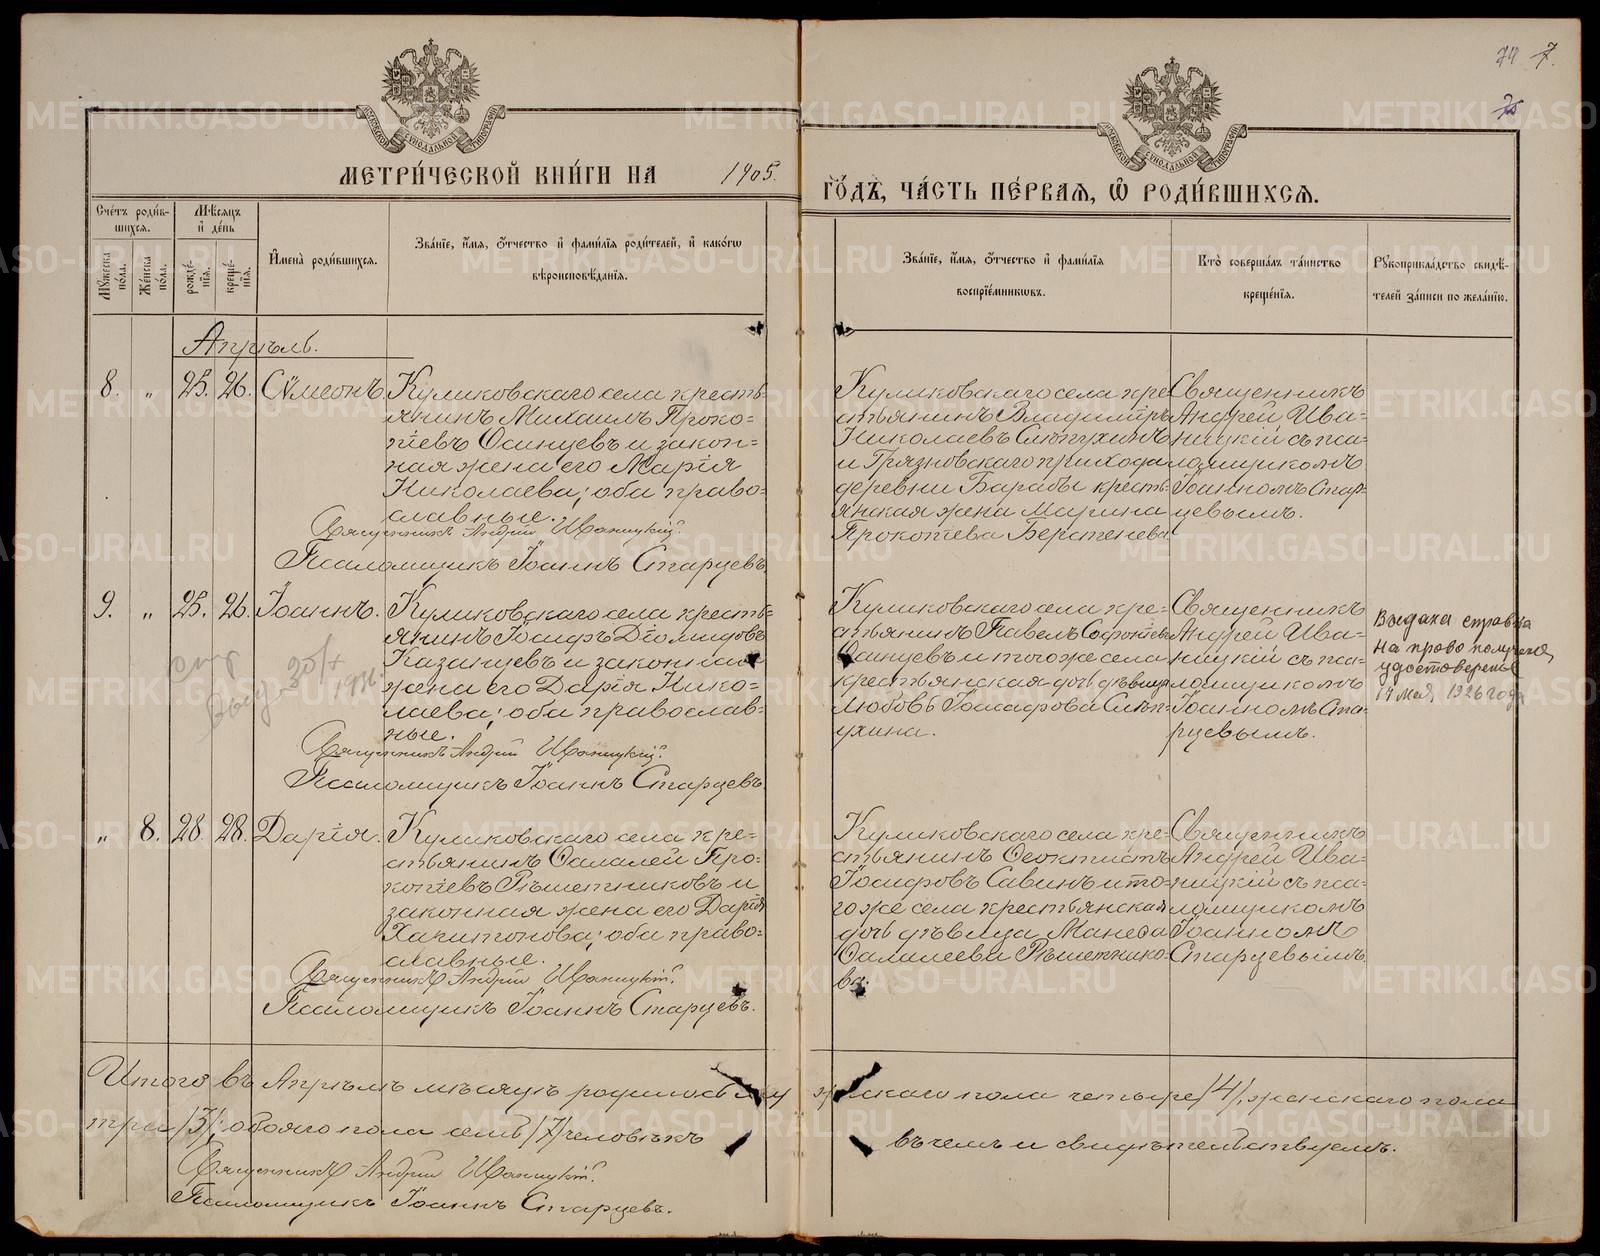 74 7.
75
МЕТРИ́ЧЕСКОЙ КНИ́ГИ НА 1905.
ГО́ДЪ, ЧА́СТЬ ПЕ́РВАѦ, Ѡ҆ РОДИ́ВШИХСѦ.
Сче́тъ роди́в-
шихсѧ.
Мѣ́сѧцъ
и҆ де́нь
Мꙋ́жеска по́ла.
Же́нска по́ла.
рожде́-
нїѧ.
креще́-
нїѧ.
И҆мена̀ роди́вшихсѧ.
Зва́нїе, и҆́мѧ, ѻ҆́тчество и҆ фами́лїѧ роди́телей, и҆ како́гѡ
вѣроисповѣ́данїѧ.
Зва́нїе, и҆́мѧ, ѻ҆́тчество и҆ фами́лїѧ
воспрїе́мникѡвъ.
Кто̀ соверша́лъ та́инство
креще́нїѧ.
Рꙋкоприкла́дство свидѣ́-
телей за́писи по жела́нїю.
Апрѣль.
8. „ 25. 26. Сѵмеонъ
Куликовскаго села кресть-
янинъ Михаилъ Проко-
піевъ Осинцевъ и закон-
ная жена его Марія
Николаева; оба право-
славные.
Священникъ Андрей Иваницкій.
Псаломщикъ Іоаннъ Старцевъ.
Куликовскаго села кре-
стьянинъ Владиміръ
Николаевъ Слѣпухинъ
и Грязновскаго прихода
деревни Барабы кресть-
янская жена Марина
Прокопіева Берстенева.
Священникъ
Андрей Ива-
ницкій съ пса-
ломщикомъ
Іоанномъ Стар-
цевымъ.
9. „ 25. 26. Іоаннъ.
Куликовскаго села кресть-
янинъ Іосифъ Діомидовъ
Казанцевъ и законная
жена его Дарія Нико-
лаева; оба православ-
ные.
Священникъ Андрей Иваницкій.
Псаломщикъ Іоаннъ Старцевъ.
выд. 20/X
Куликовскаго села кре-
стьянинъ Павелъ Софоніевъ
Осинцевъ и того же села
крестьянская дочь дѣвица
Любовь Іоасафова Слѣп-
ухина.
Священникъ
Андрей Ива-
ницкій съ пса-
ломщикомъ
Іоанномъ Ста-
рцевымъ.
Выдана справка
на право получения
удостоверения
14 мая 1926 года
„ 8. 28. 28. Дарія.
Куликовскаго села кре-
стьянинъ Ѳалалей Про-
копіевъ Рѣшетниковъ и
законная жена его Дарія
Харитонова; оба право-
славные.
Священникъ Андрей Иваницкій.
Псаломщикъ Іоаннъ Старцевъ.
Куликовскаго села кре-
стьянинъ Ѳеоктистъ
Іосифовъ Савинъ и то-
го же села крестьянская
дочь дѣвица Манефа
Ѳалалеева Рѣшетнико-
ва.
Священникъ
Андрей Ива-
ницкій съ пса-
ломщикомъ
Іоанномъ
Старцевымъ
Итого въ Апрѣлѣ мѣсяцѣ родилось мужескаго пола четыре /4/, женскаго пола
три /3/; обоего пола семь /7/ человѣкъ въ чемъ и свидѣтельствуемъ.
Священникъ Андрей Иваницкій.
Псаломщикъ Іоаннъ Старцевъ.
METRIKI.GASO-URAL.RU